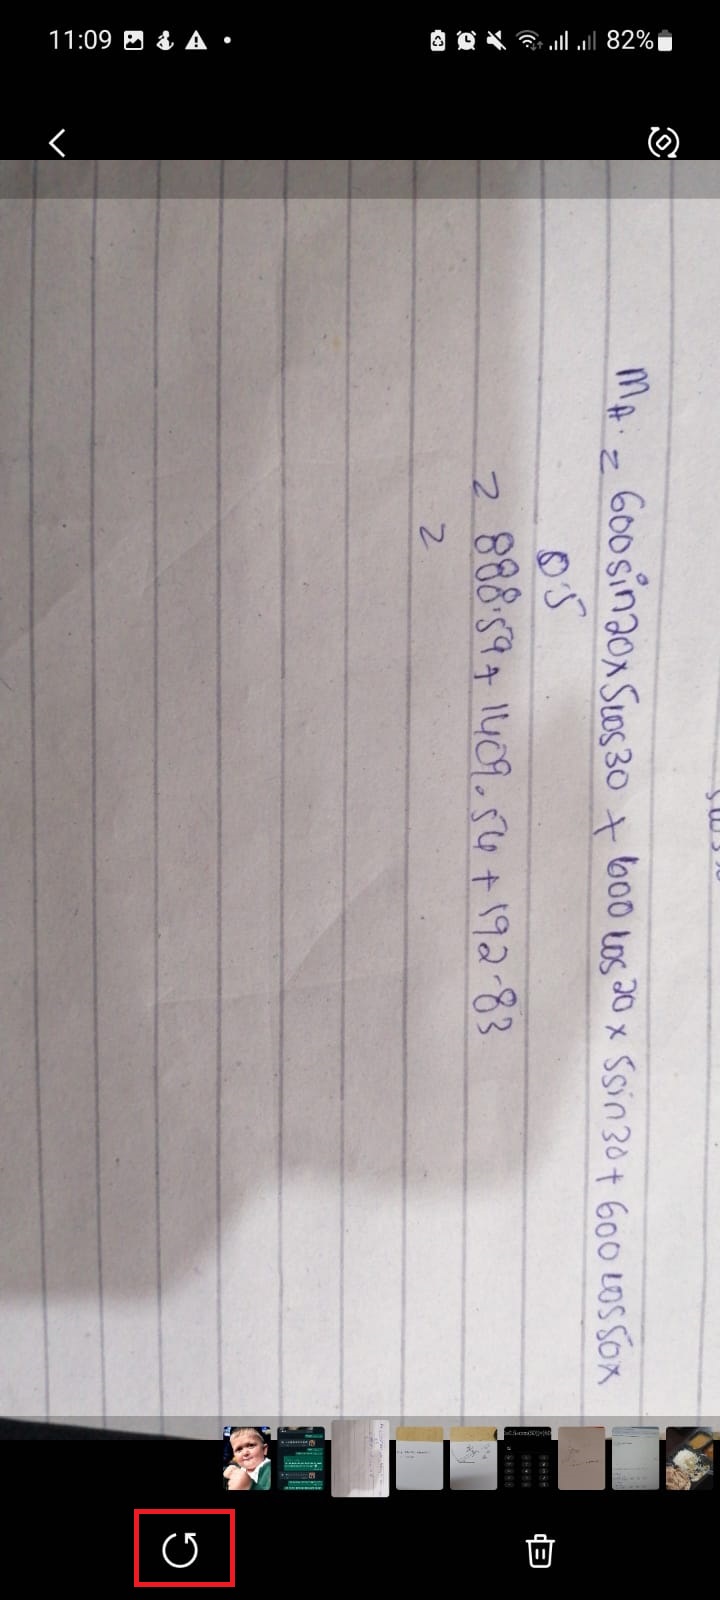 11:09
82%
M_A. = 600sin20×5cos30 + 600 cos20 × 5sin30 + 600 cos50×
0.5
= 888.59 + 1409.54 + 192.83
=